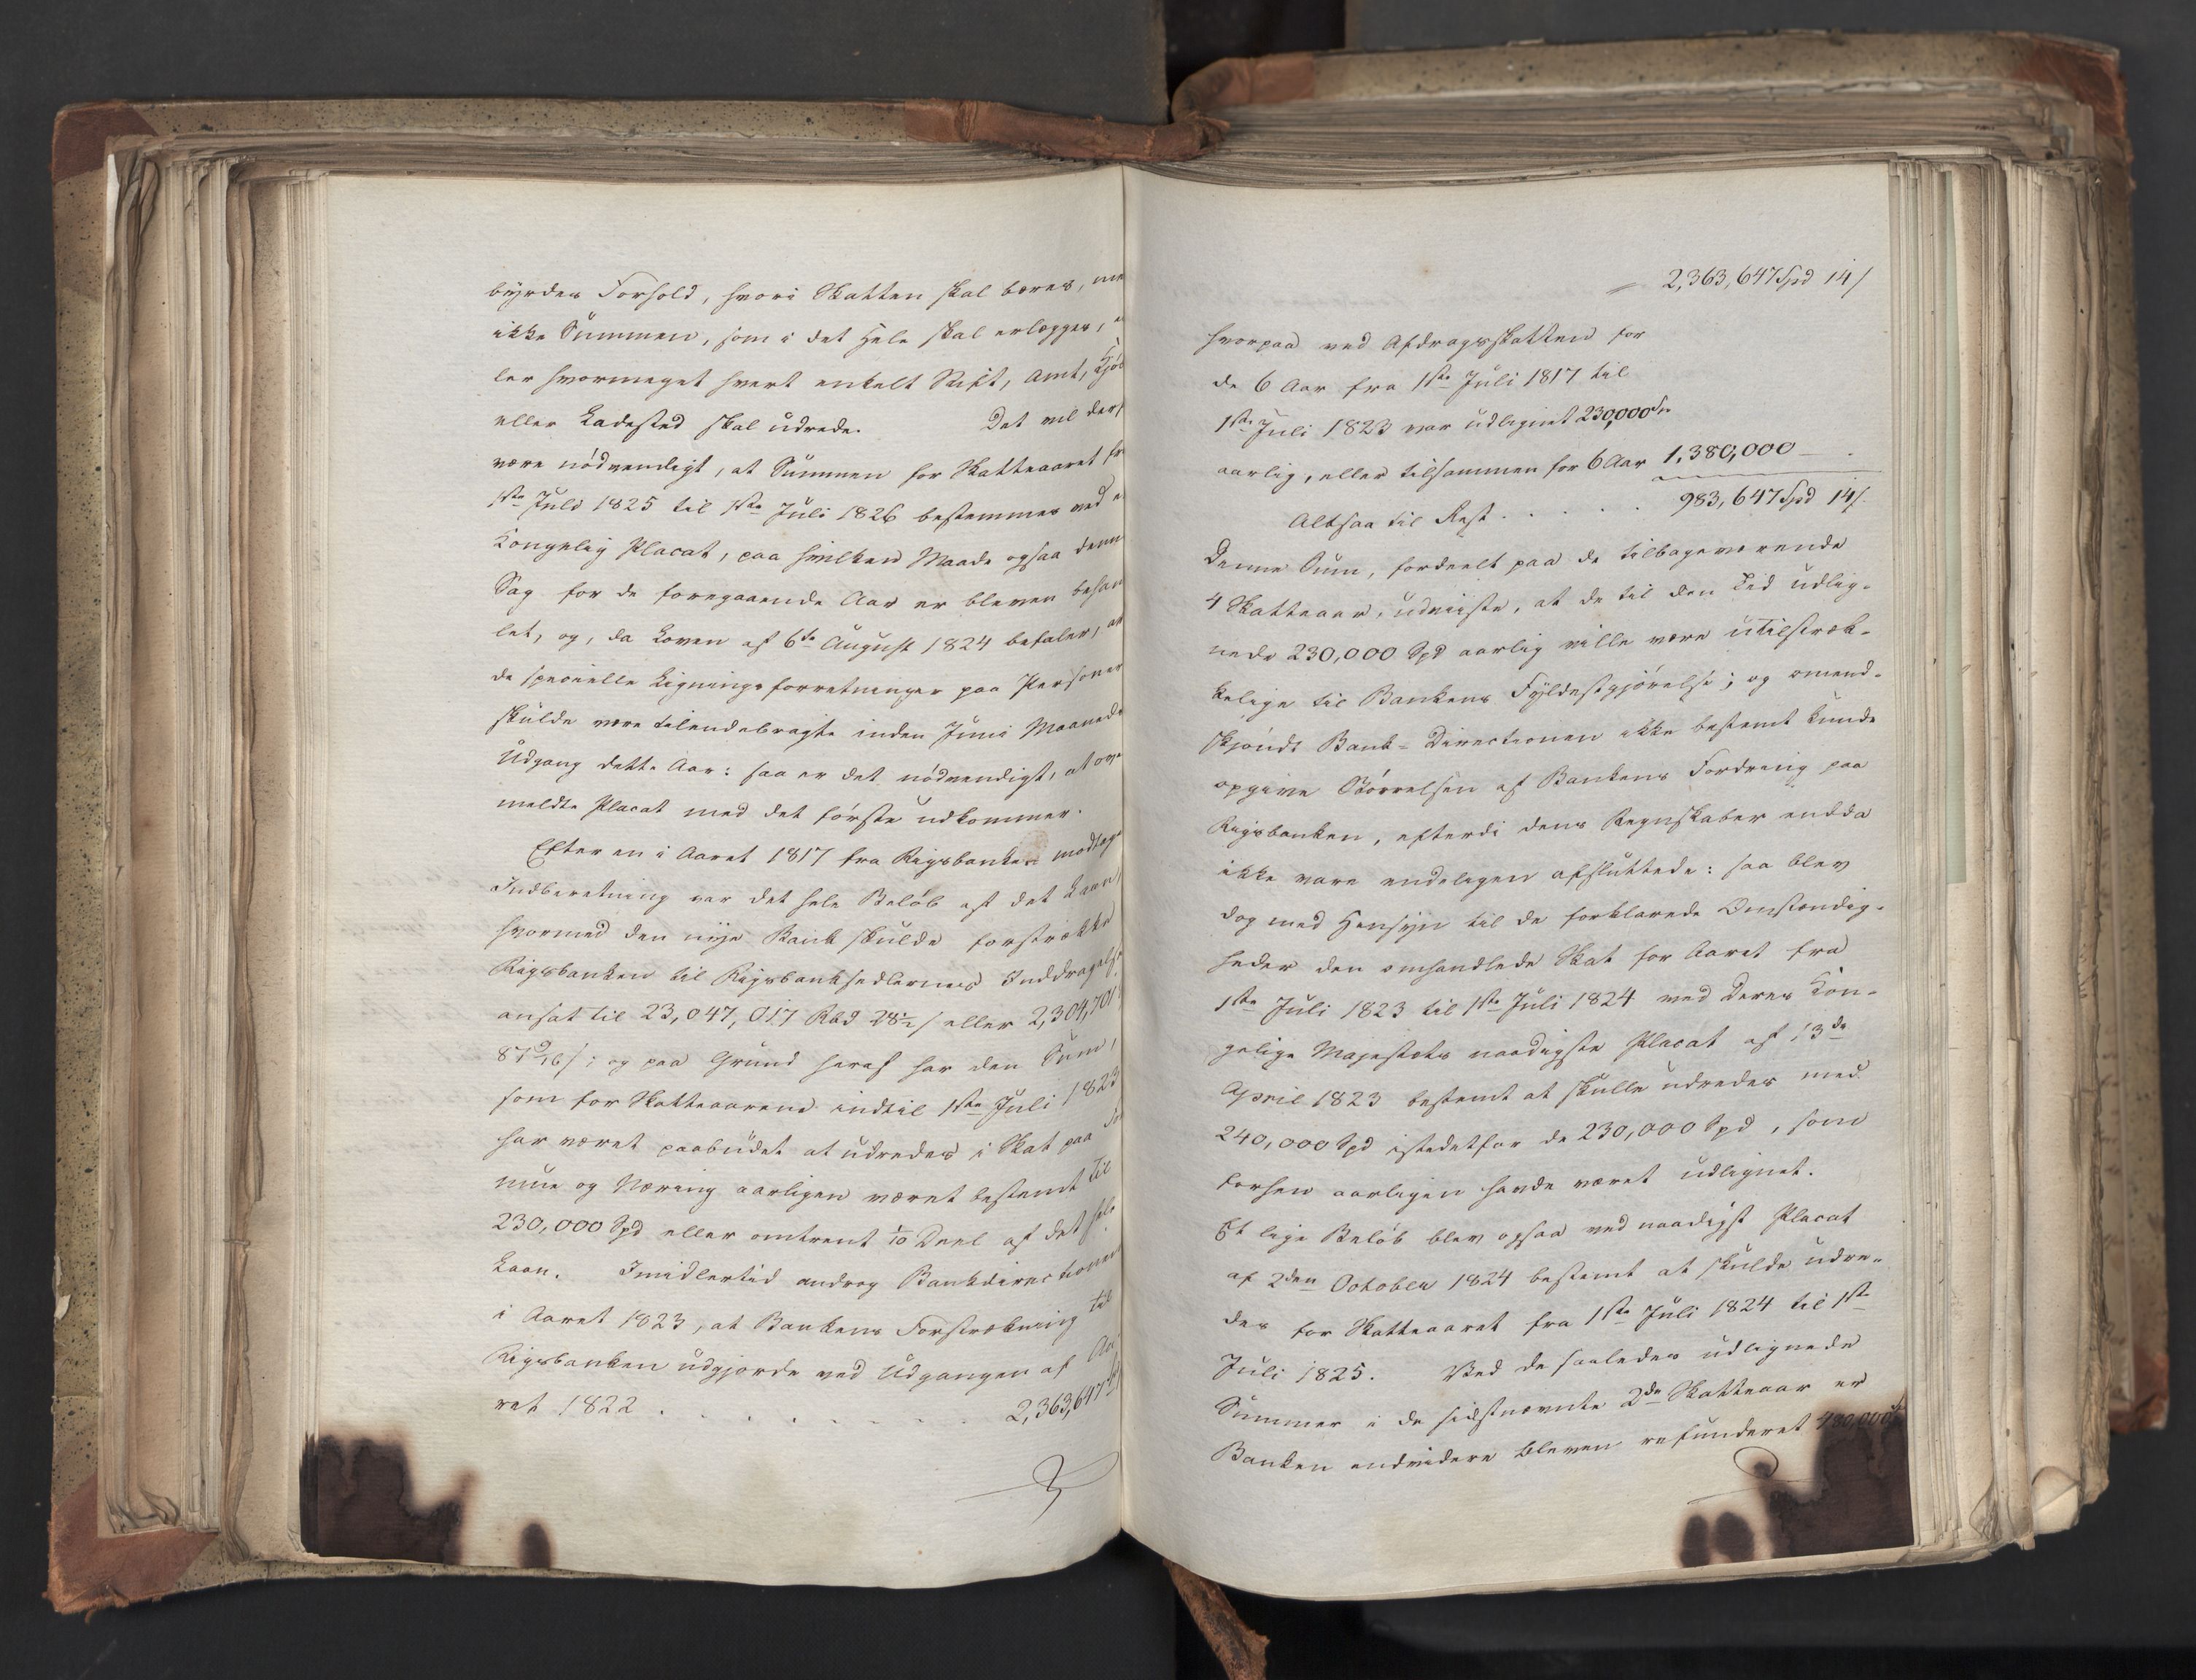 byrdes Forhold, hvori Skatten skal bæres, me
ikke Summen, som i det Hele skal erlægges, e
ler hvormeget hvert enkelt Stift, Amt, Kjøb
eller Ladested skal udrede. Det vil derf
være nödvendigt, at Summen for Skatteaaret fr
1ste Juli 1825 til 1ste Juli 1826 bestemmes ved e
Kongelig Placat, paa hvilken Maade ogsaa denne
Sag for de foregaaende Aar er bleven behan
let, og, da Loven af 6te August 1824 befaler, at
de specielle Ligningsforretninger paa Personer
skulde være tilendebragte inden Juni Maaneds
Udgang dette Aar: saa er det nödvendigt, at ov
meldte Placat med det förste udkommer.
Efter en i Aaret 1817 fra Rigsbanken modtag
Indberetning var det hele Belöb af det Laan,
hvormed den nye Bank skulde forstrække
Rigsbanken til Rigsbanksedlernes Inddragelse
ansat til 23,047,017 Rbd 28½ s eller 2,304,701
87 9/16 s; og paa Grund heraf har den Sum,
som for Skatteaarene indtil 1ste Juli 1823
har været paabudet at udredes i Skat paa For
mue og Næring aarligen været bestemt til
230,000 Spd eller omtrent 1/10 Deel af det hele
Laan. Imidlertid androg Bankdirectionen
i Aaret 1823, at Bankens Forstrækning til
Rigsbanken udgjorde ved Udgangen af Aa
ret 1822 . . . . . . . . 2,363,647
2,363,647 Spd 14 s
hvorpaa ved Afdragsskatten for
de 6 Aar fra 1ste Juli 1817 til
1ste Juli 1823 var udlignet 230,000 Sp
aarlig, eller tilsammen for 6 Aar 1,380,000 — .
Altsaa til Rest . . . . . 983,647 Spd 14 s.
Denne Sum, fordeelt paa de tilbageværende
4 Skatteaar, udviiste, at de til den Tid udlig-
nede 230,000 Spd aarlig ville være utilstræk-
kelige til Bankens Fyldestgjörelse; og omend-
skjöndt Bank-Directionen ikke bestemt kunde
opgive Störrelsen af Bankens Fordring paa
Rigsbanken, efterdi dens Regnskaber endda
ikke vare endeligen afsluttede: saa blev
dog med Hensyn til de forklarede Omstændig-
heder den omhandlede Skat for Aaret fra
1ste Juli 1823 til 1ste Juli 1824 ved Deres Kon-
gelige Majestæts naadigste Placat af 13de
April 1823 bestemt at skulle udredes med
240,000 Spd istedetfor de 230,000 Spd, som
forhen aarligen havde været udlignet.
Et lige Belöb blev ogsaa ved naadigst Placat
af 2den October 1824 bestemt at skulde udre-
des for Skatteaaret fra 1ste Juli 1824 til 1ste
Juli 1825. Ved de saaledes udlignede
Summer i de sidstnævnte 2de Skatteaar er
Banken endvidere bleven refunderet 480,000 Sp